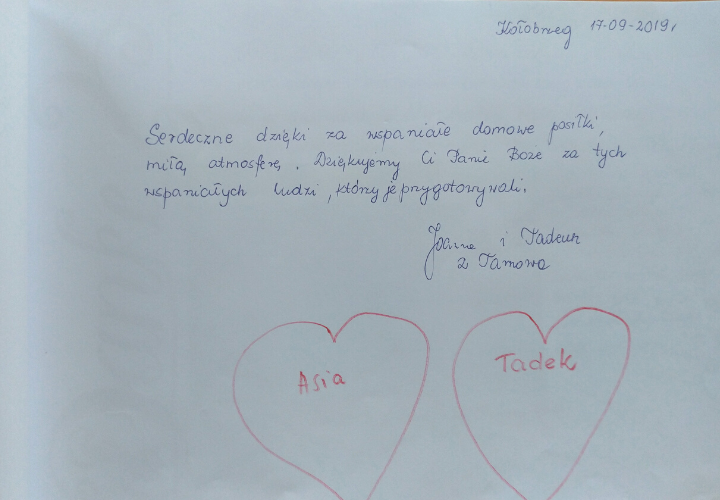 Kołobrzeg 17-09-2019r
Serdeczne dzięki za wspaniałe domowe posiłki,
miłą atmosferę. Dziękujemy Ci Panie Boże za tych
wspaniałych ludzi, którzy je przygotowywali.
Joanna i Tadeusz
z Tarnowa
Asia
Tadek